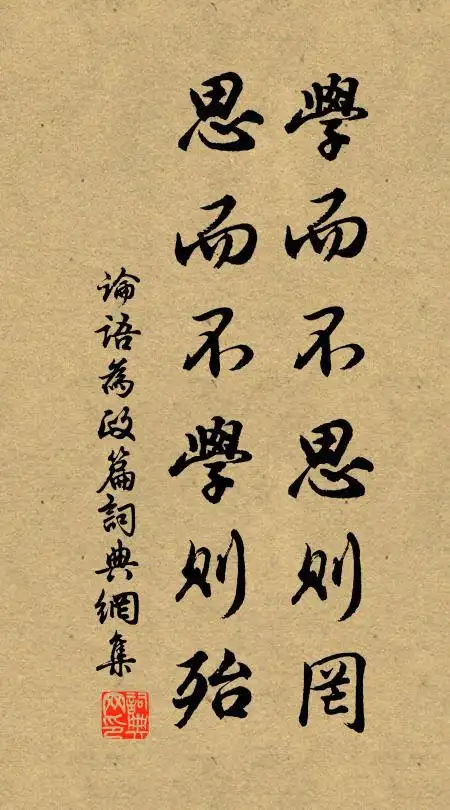 學而不思則罔
思而不學則殆
论语為政篇詞典網集
詞典网印